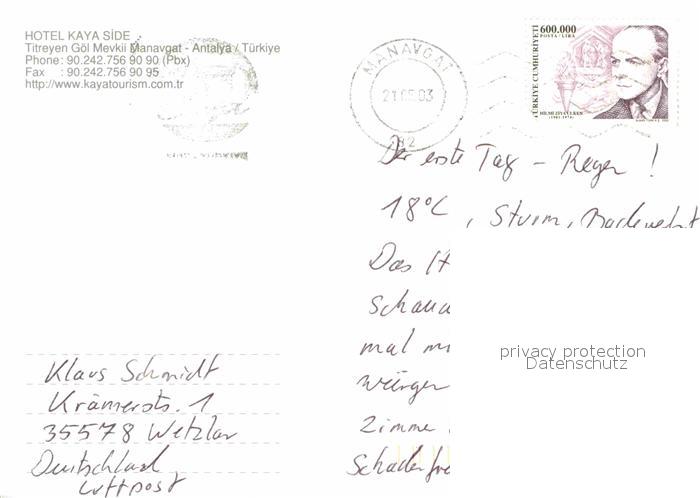 HOTEL KAYA SİDE
Titreyen Göl Mevkii Manavgat - Antalya / Türkiye
Phone: 90.242.756 90 90 (Pbx)
Fax : 90.242.756 90 95
http://www.kayatourism.com.tr
MANAVGAT
21.05.03
600.000
POSTA / LİRA
TÜRKİYE CUMHURİYETİ
HİLMİ ZİYA ÜLKEN
Der erste Tag - Regen!
18°C, Sturm,
Das
mal
würgen
Klaus Schmidt
Krämerstr. 1
35578 Wetzlar
Deutschland
Luftpost
privacy protection
Datenschutz